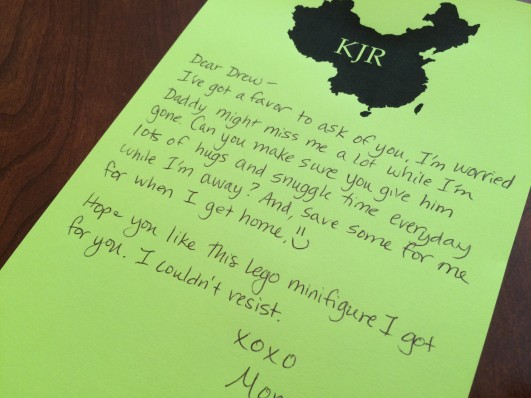 KJR
Dear Drew—
I've got a favor to ask of you. I'm worried
Daddy might miss me a lot while I'm
gone. Can you make sure you give him
lots of hugs and snuggle time everyday
while I'm away? And, save some for me
for when I get home. :)
Hope you like this lego minifigure I got
for you. I couldn't resist.
xoxo
Mom